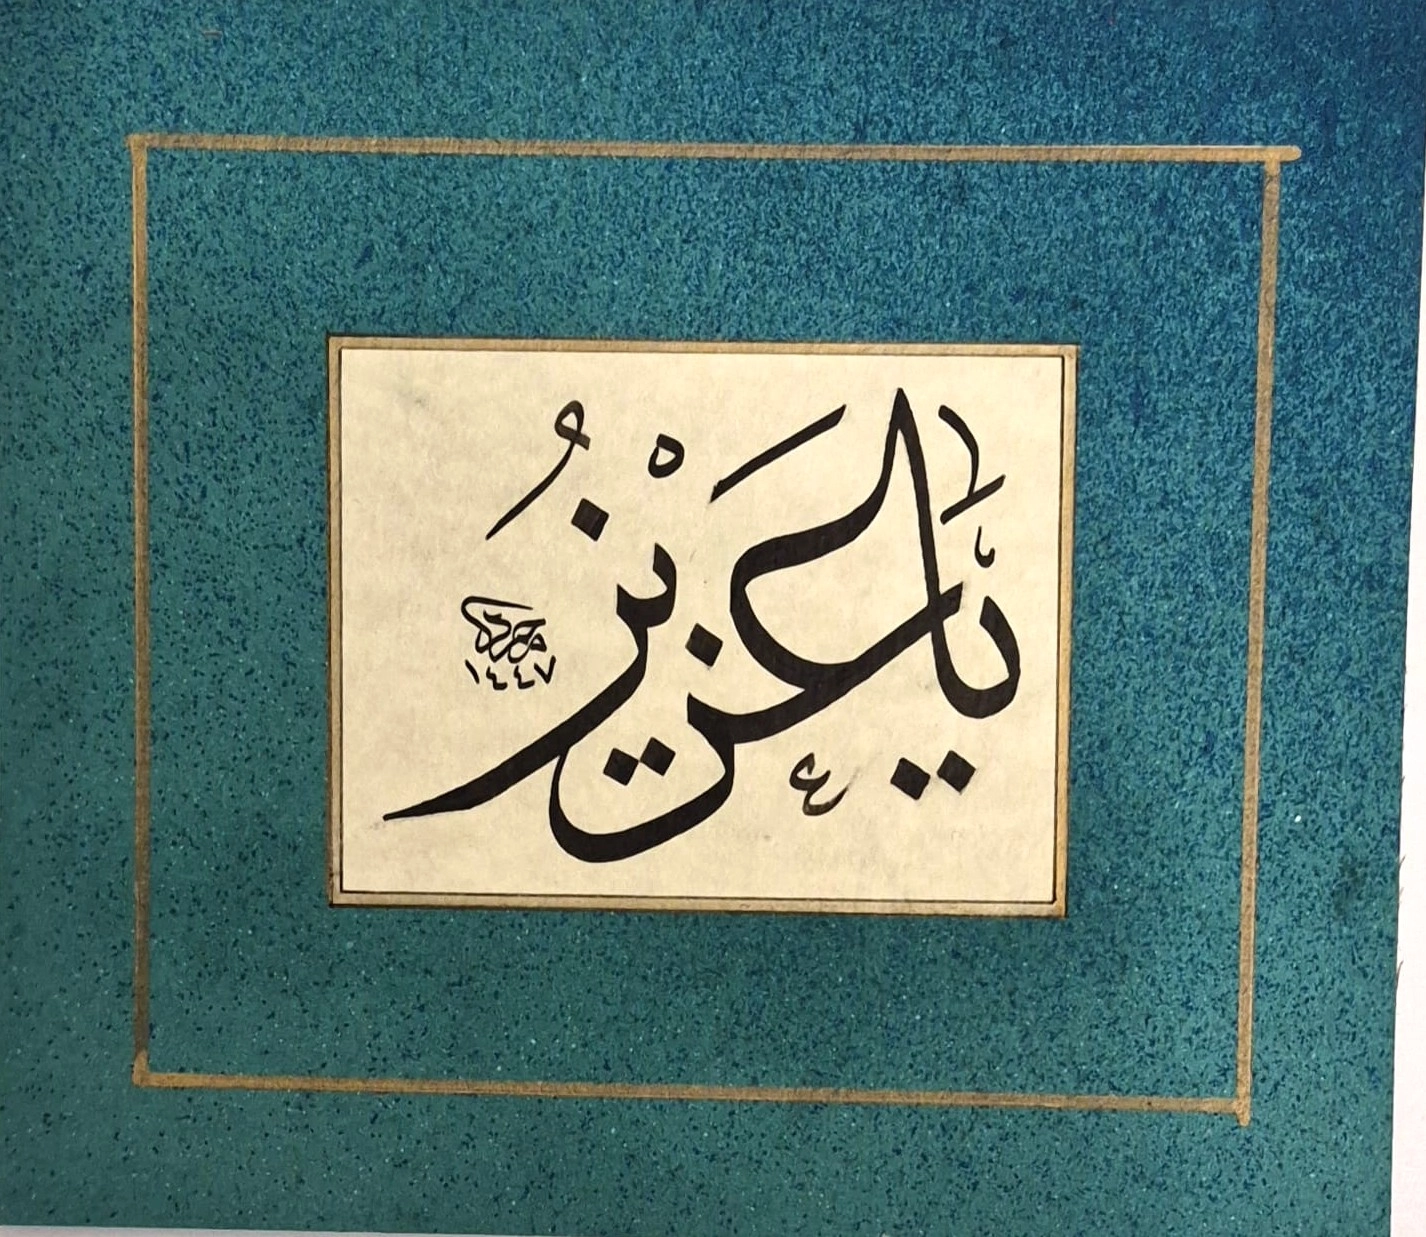 يَا عَزِيْزُ
١٤٤٧